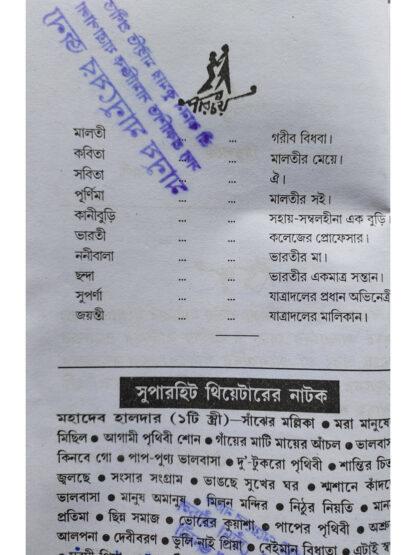 পরিচয়
মালতী ... ... গরীব বিধবা।
কবিতা ... ... মালতীর মেয়ে।
সবিতা ... ... ঐ।
পূর্ণিমা ... ... মালতীর সই।
কানীবুড়ি ... ... সহায়-সম্বলহীনা এক বুড়ি।
ভারতী ... ... কলেজের প্রোফেসার।
ননীবালা ... ... ভারতীর মা।
ছন্দা ... ... ভারতীর একমাত্র সন্তান।
সুপর্ণা ... ... যাত্রাদলের প্রধান অভিনেত্রী
জয়ন্তী ... ... যাত্রাদলের মালিকান।
সুপারহিট থিয়েটারের নাটক
মহাদেব হালদার (১টি স্ত্রী)—সাঁঝের মল্লিকা ● মরা মানুষে
মিছিল ● আগামী পৃথিবী শোন ● গাঁয়ের মাটি মায়ের আঁচল ● ভালবাস
কিনবে গো ● পাপ-পুণ্য ভালবাসা ● দু'-টুকরো পৃথিবী ● শান্তির চিত
জ্বলছে ● সংসার সংগ্রাম ● ভাঙছে সুখের ঘর ● শ্মশানে কাঁদে
ভালবাসা ● মানুষ অমানুষ ● মিলন মন্দির ● নিঠুর নিয়তি ● মান
প্রতিমা ● ছিন্ন সমাজ ● ভোরের কুয়াশা ● পাপের পৃথিবী ● অশ্রু
আলপনা ● দেবীবরণ ● ভুলি নাই প্রিয়া ● বেইমান বিধাতা ● এটাই স্ব